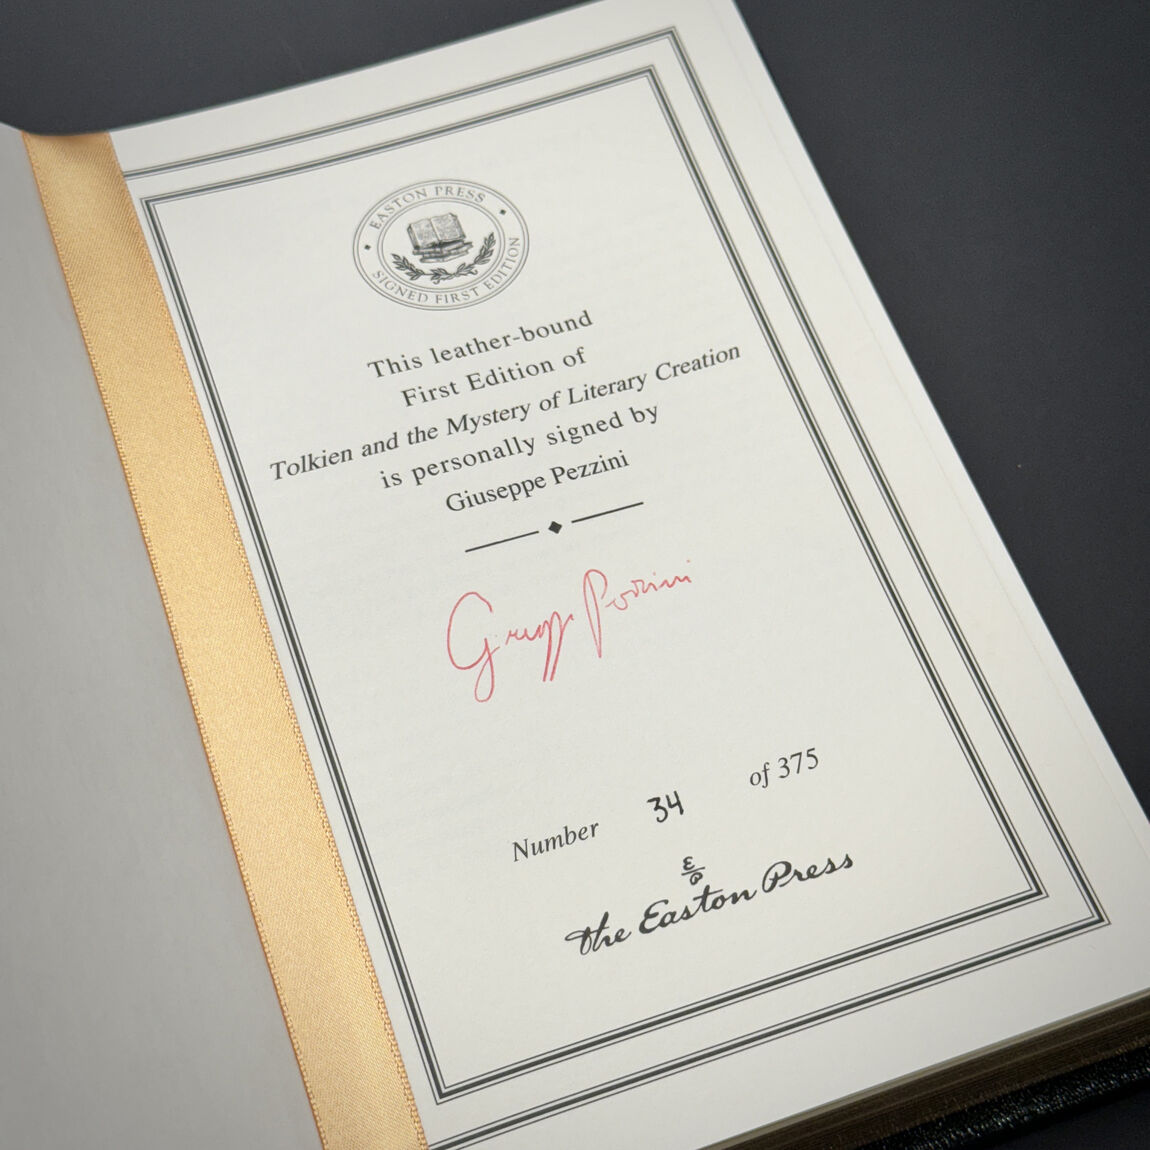 EASTON PRESS
SIGNED FIRST EDITION
This leather-bound
First Edition of
Tolkien and the Mystery of Literary Creation
is personally signed by
Giuseppe Pezzini
Number 34 of 375
E
P
The Easton Press